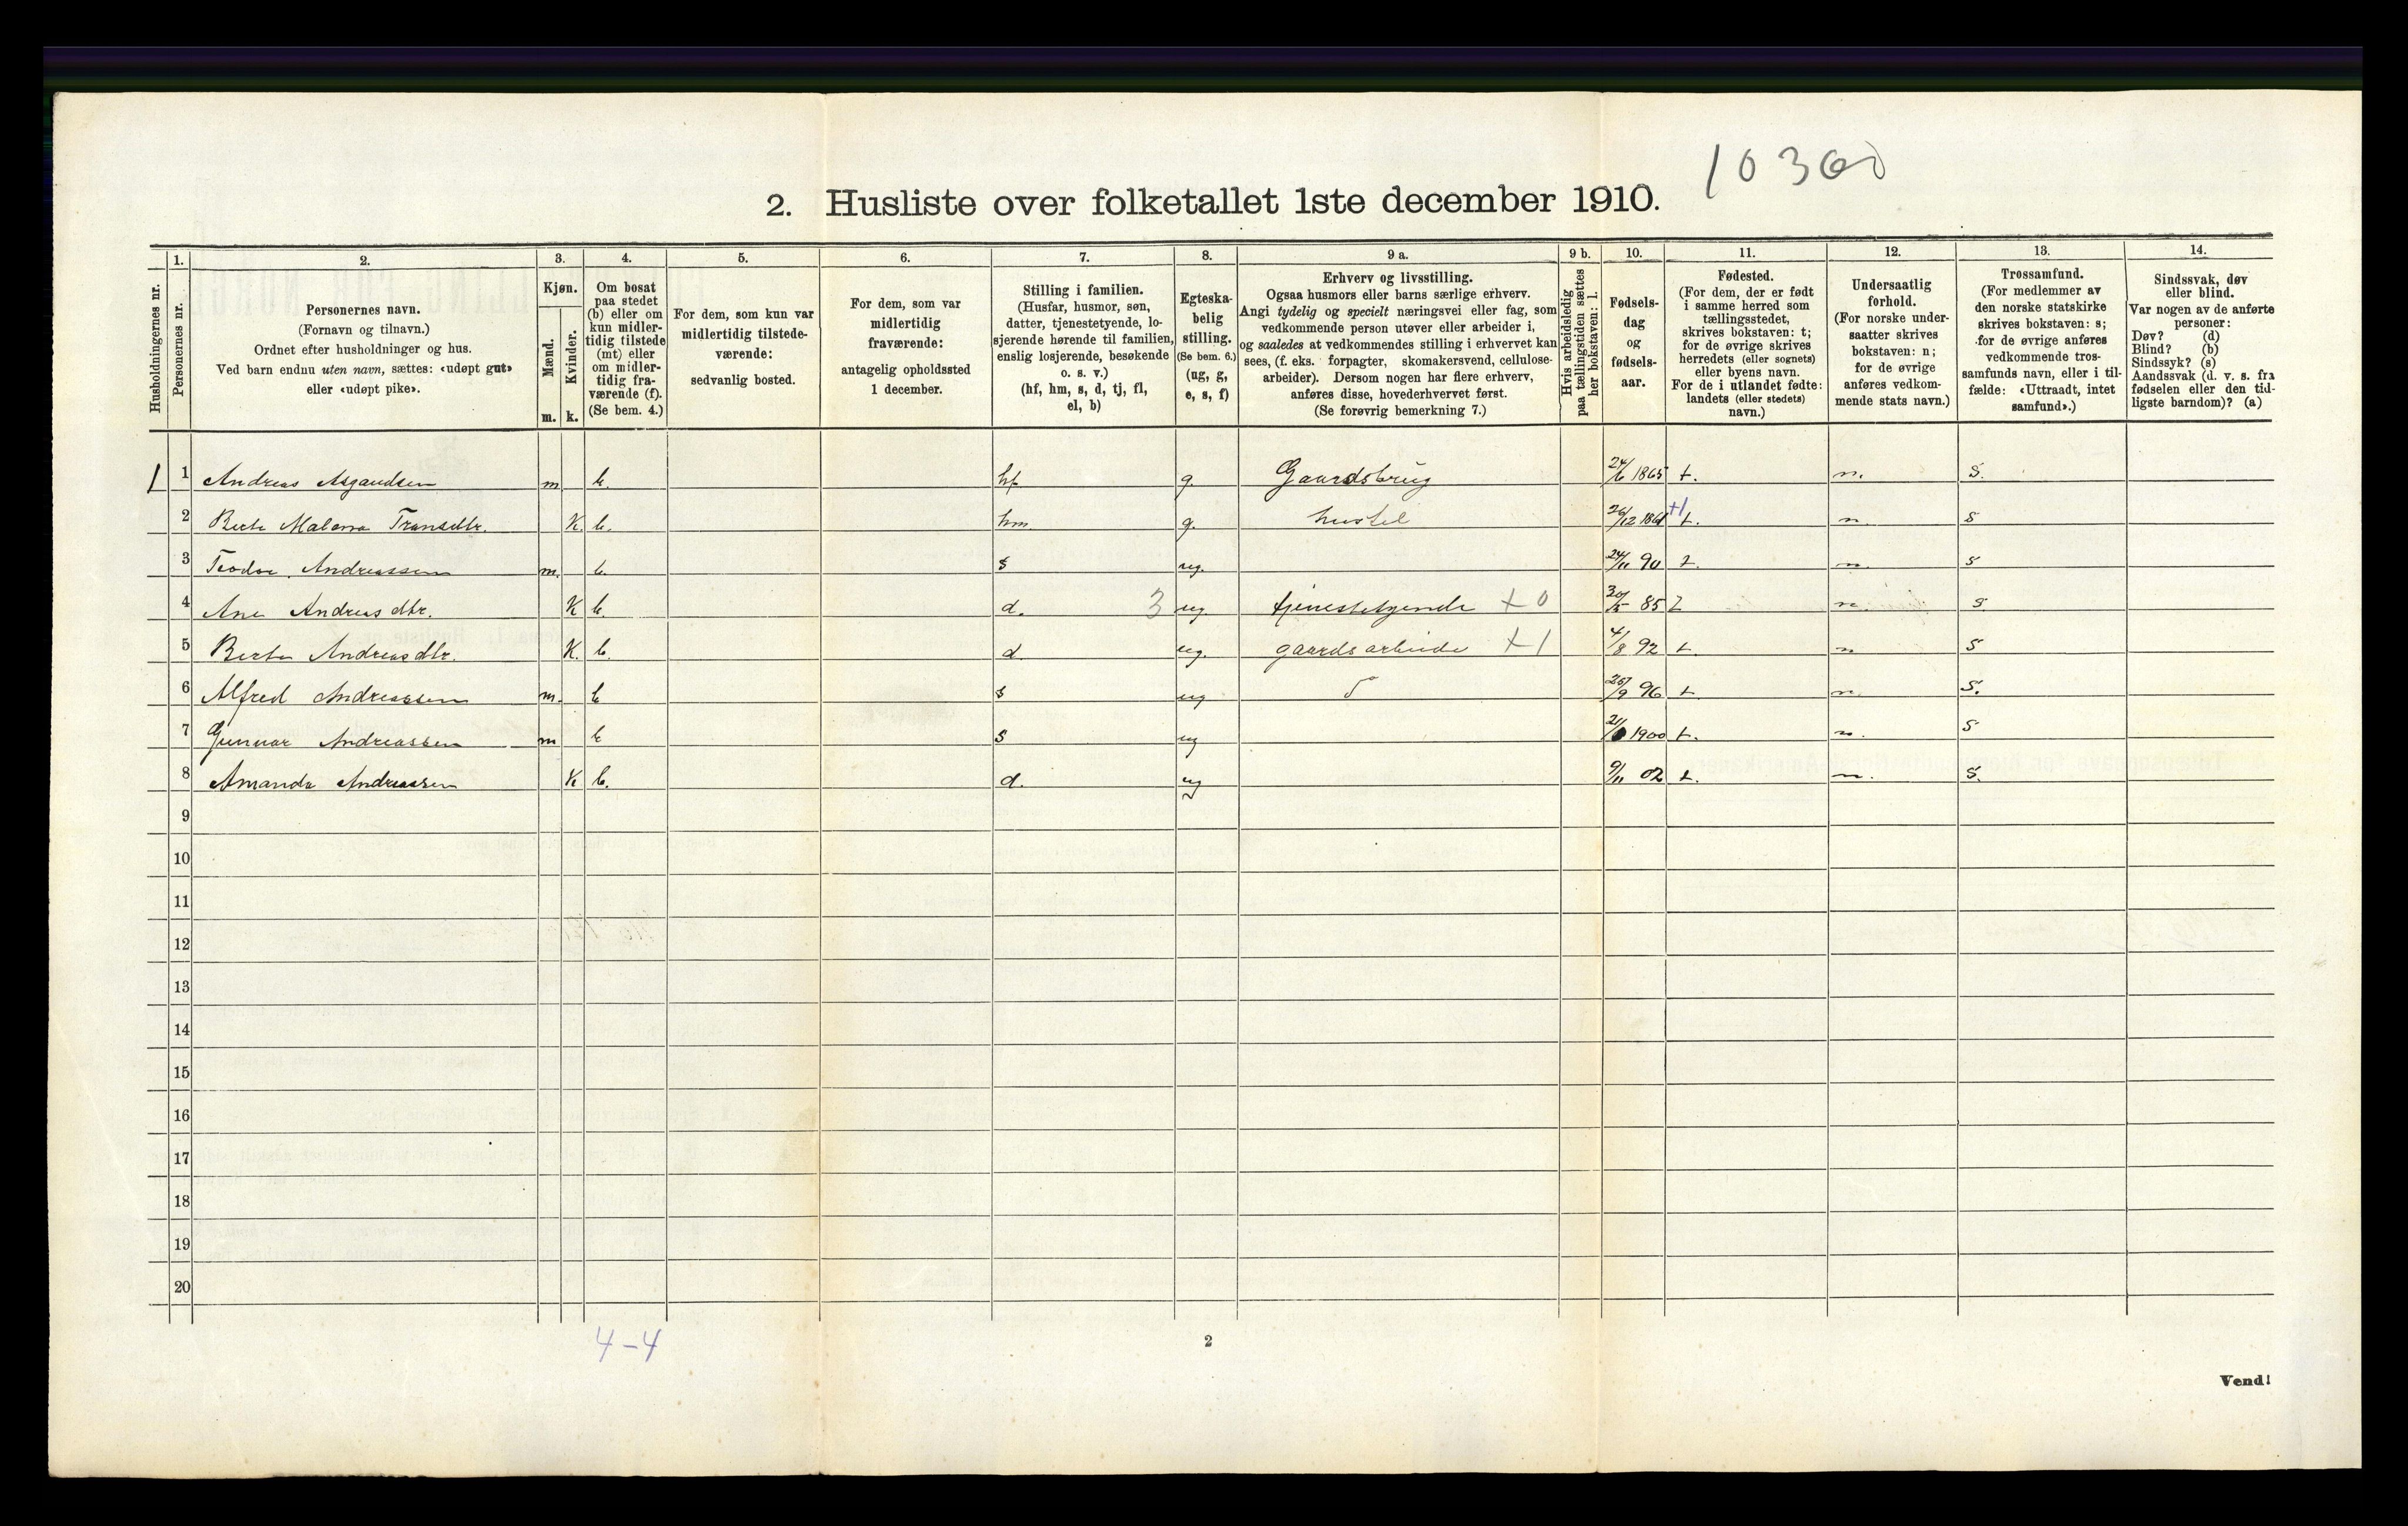 10300
2. Husliste over folketallet 1ste december 1910.
Husholdningernes nr.
1.
Personernes nr.
2.
Personernes navn.
(Fornavn og tilnavn.)
Ordnet efter husholdninger og hus.
Ved barn endnu uten navn, sættes: «udøpt gut»
eller «udøpt pike».
3.
Kjøn.
Mænd.
m.
Kvinder.
k.
4.
Om bosat
paa stedet
(b) eller om
kun midler-
tidig tilstede
(mt) eller
om midler-
tidig fra-
værende (f).
(Se bem. 4.)
5.
For dem, som kun var
midlertidig tilstede-
værende:
sedvanlig bosted.
6.
For dem, som var
midlertidig
fraværende:
antagelig opholdssted
1 december.
7.
Stilling i familien.
(Husfar, husmor, søn,
datter, tjenestetyende, lo-
sjerende hørende til familien,
enslig losjerende, besøkende
o. s. v.)
(hf, hm, s, d, tj, fl,
el, b)
8.
Egteska-
belig
stilling.
(Se bem. 6.)
(ug, g,
e, s, f)
9 a.
Erhverv og livsstilling.
Ogsaa husmors eller barns særlige erhverv.
Angi tydelig og specielt næringsvei eller fag, som
vedkommende person utøver eller arbeider i,
og saaledes at vedkommendes stilling i erhvervet kan
sees, (f. eks. forpagter, skomakersvend, cellulose-
arbeider). Dersom nogen har flere erhverv,
anføres disse, hovederhvervet først.
(Se forøvrig bemerkning 7.)
9 b.
Hvis arbeidsledig
paa tællingstiden sættes
her bokstaven: l.
10.
Fødsels-
dag
og
fødsels-
aar.
11.
Fødested.
(For dem, der er født
i samme herred som
tællingsstedet,
skrives bokstaven: t;
for de øvrige skrives
herredets (eller sognets)
eller byens navn.
For de i utlandet fødte:
landets (eller stedets)
navn.)
12.
Undersaatlig
forhold.
(For norske under-
saatter skrives
bokstaven: n;
for de øvrige
anføres vedkom-
mende stats navn.)
13.
Trossamfund.
(For medlemmer av
den norske statskirke
skrives bokstaven: s;
for de øvrige anføres
vedkommende tros-
samfunds navn, eller i til-
fælde: «Uttraadt, intet
samfund».)
14.
Sindssvak, døv
eller blind.
Var nogen av de anførte
personer:
Døv? (d)
Blind? (b)
Sindssyk? (s)
Aandssvak (d. v. s. fra
fødselen eller den tid-
ligste barndom)? (a)
1 1 Andreas Asgautsen m b. hf g. Gaardsbrug 24/6 1865 t. n. S.
2 Berte Malena Transdtr. K. b. hm g. hustel 26/12 1861 +1 t. n s
3 Teodor Andreassen m. b. s ug. 24/11 90 t. n s
4 Ane Andreasdtr. K b. d. 3 ug tjenestetyende +0 30/5 85 t n. s.
5 Berte Andreasdtr. K. b. d ug. gaardsarbeide +1 4/8 92 t. n s
6 Alfred Andreassen m. b s ug 5 26/9 96 t n. S.
7 Gunnar Andreassen m b s ug 1900 t. n. s
8 Amanda Andreassen K b. d. ug 9/11 02 t. n. S.
9
10
11
12
13
14
15
16
17
18
19
20
4-4
2
Vend!